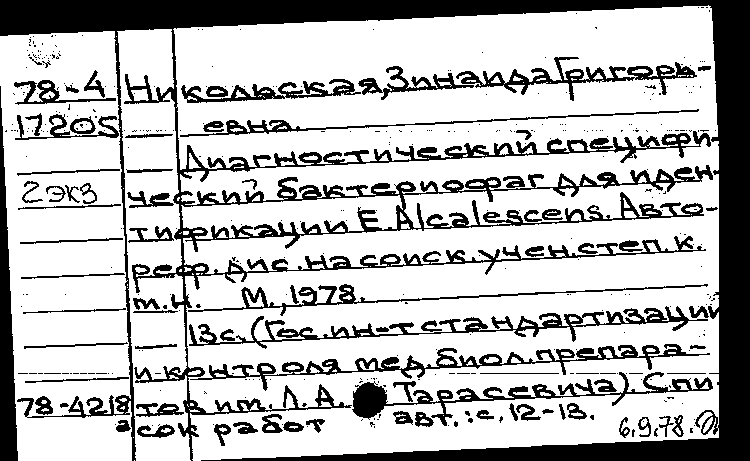 78-4 Никольская, Зинаида Григорь-
17205 евна.
Диагностический специфи-
2 экз ческий бактериофаг для иден-
тификации E. Alcalescens. Авто-
реф. дис. на соиск. учен. степ. к.
м.н. М., 1978.
13 с. (Гос. ин-т стандартизации
и контроля мед. биол. препара-
78-4218 тов им. Л. А. Тарасевича). Спи-
а сок работ авт.: с. 12-13.
6.9.78.